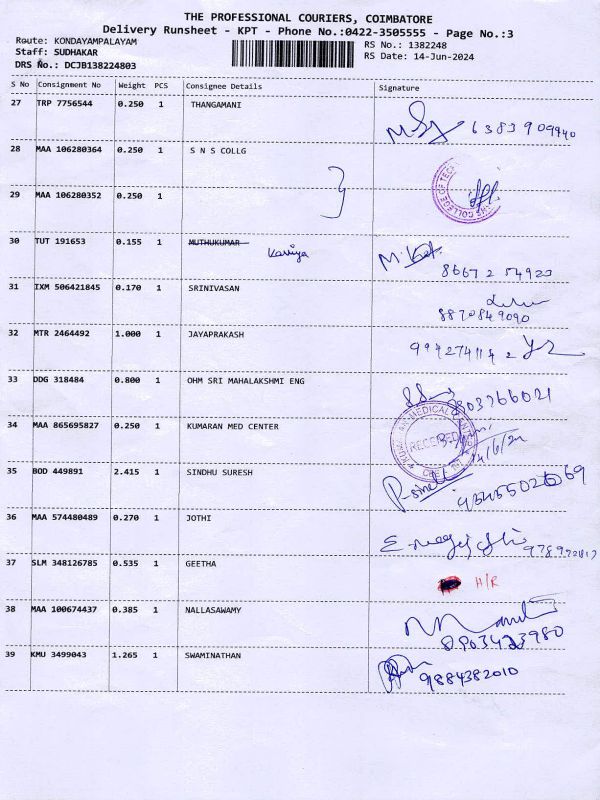 THE PROFESSIONAL COURIERS, COIMBATORE
Delivery Runsheet - KPT - Phone No.:0422-3505555 - Page No.:3
Route: KONDAYAMPALAYAM
RS No.: 1382248
Staff: SUDHAKAR
RS Date: 14-Jun-2024
DRS No.: DCJB138224803
S No Consignment No Weight PCS Consignee Details Signature
27 TRP 7756544 0.250 1 THANGAMANI
6383909940
28 MAA 106280364 0.250 1 S N S COLLG
29 MAA 106280352 0.250 1
30 TUT 191653 0.155 1 MUTHUKUMAR
86672 54923
31 IXM 506421845 0.170 1 SRINIVASAN
8870849090
32 MTR 2464492 1.000 1 JAYAPRAKASH
33 DDG 318484 0.800 1 OHM SRI MAHALAKSHMI ENG
34 MAA 865695827 0.250 1 KUMARAN MED CENTER
RECEIVED
35 BOD 449891 2.415 1 SINDHU SURESH
36 MAA 574480489 0.270 1 JOTHI
37 SLM 348126785 0.535 1 GEETHA
H/R
38 MAA 100674437 0.385 1 NALLASAWMY
39 KMU 3499043 1.265 1 SWAMINATHAN
9884382010